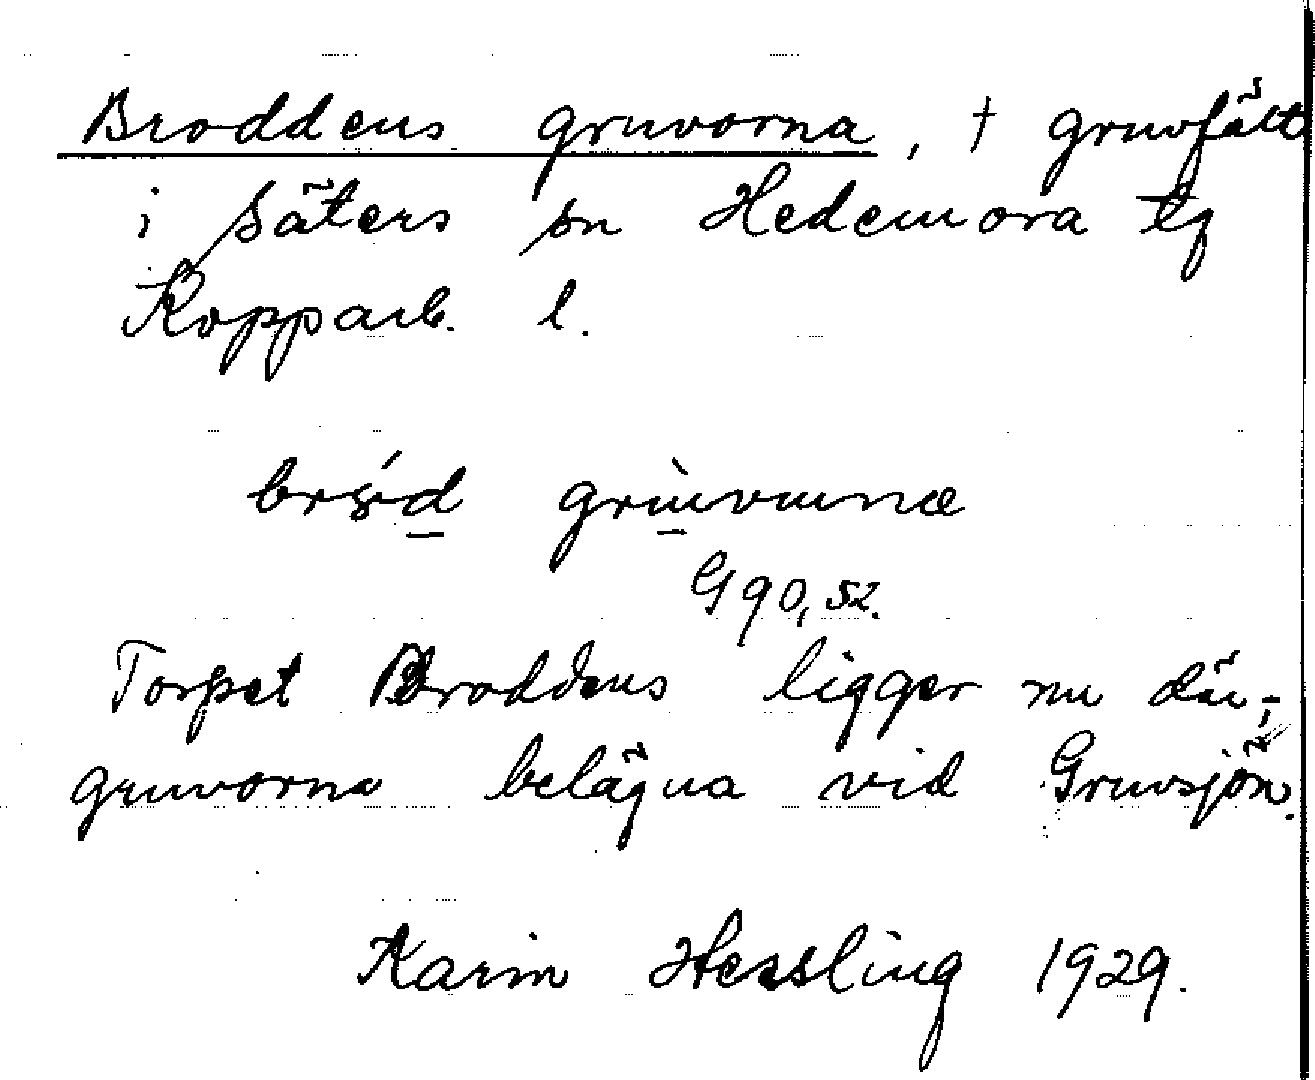 Broddens gruvorna, † gruvfält
i Säters sn Hedemora tg
Kopparb. l.
G 90, 52.
Torpet Broddens ligger nu där;
gruvorna belägna vid Gruvsjön.
Karin Hessling 1929.